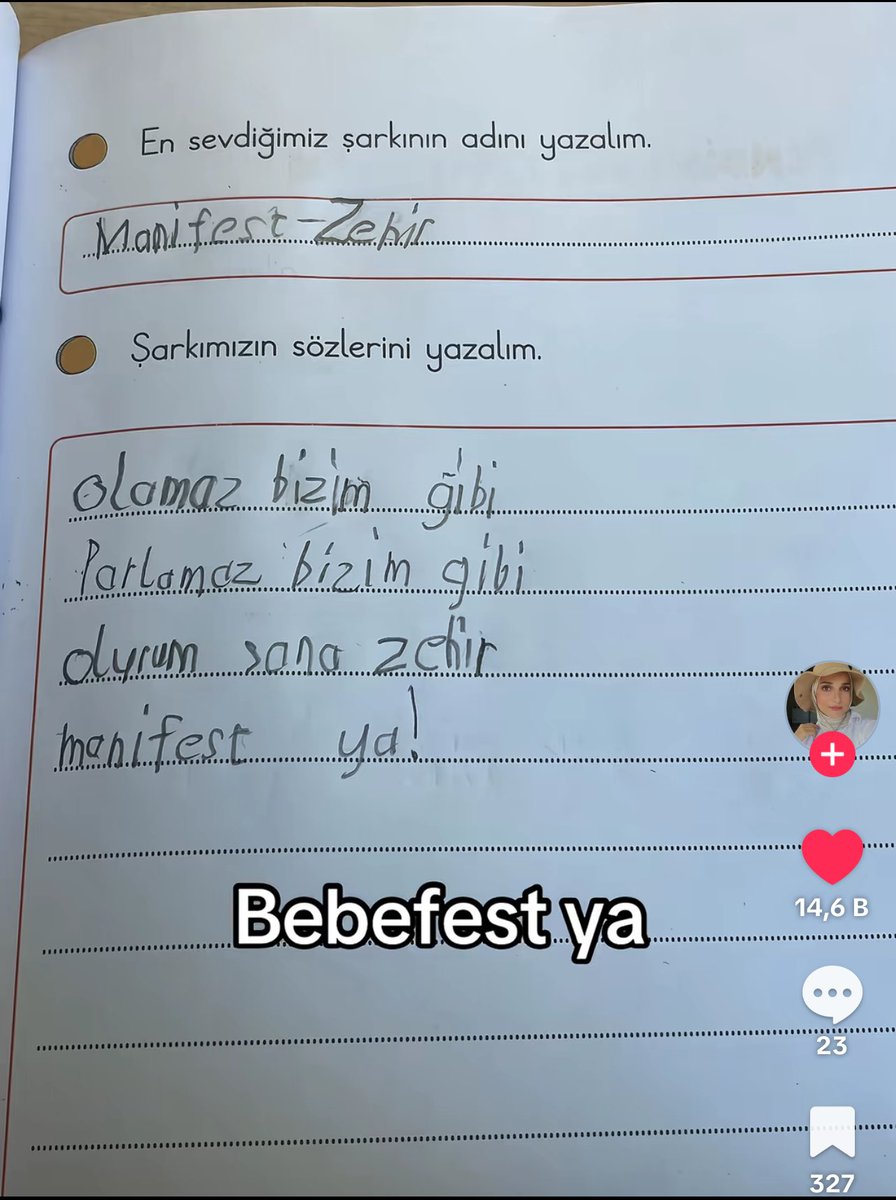 En sevdiğimiz şarkının adını yazalım.
Manifest-Zehir
Şarkımızın sözlerini yazalım.
olamaz bizim ğibi
Parlamaz bizim gibi
olyrum sana zehir
manifest ya!
Bebefest ya
14,6 B
23
327